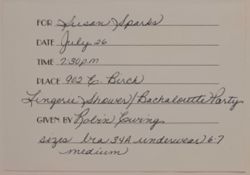 FOR Susan Sparks
DATE July 26
TIME 7:30pm
PLACE 902 E. Birch
Lingerie Shower/Bachalorette Party
GIVEN BY Robin Ewing
sizes bra 34A underwear 6-7
medium